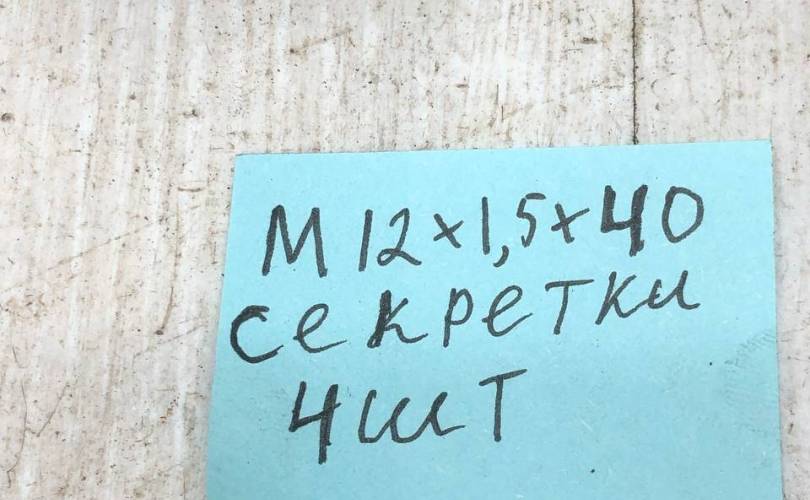 М12х1,5х40
секретки
4шт